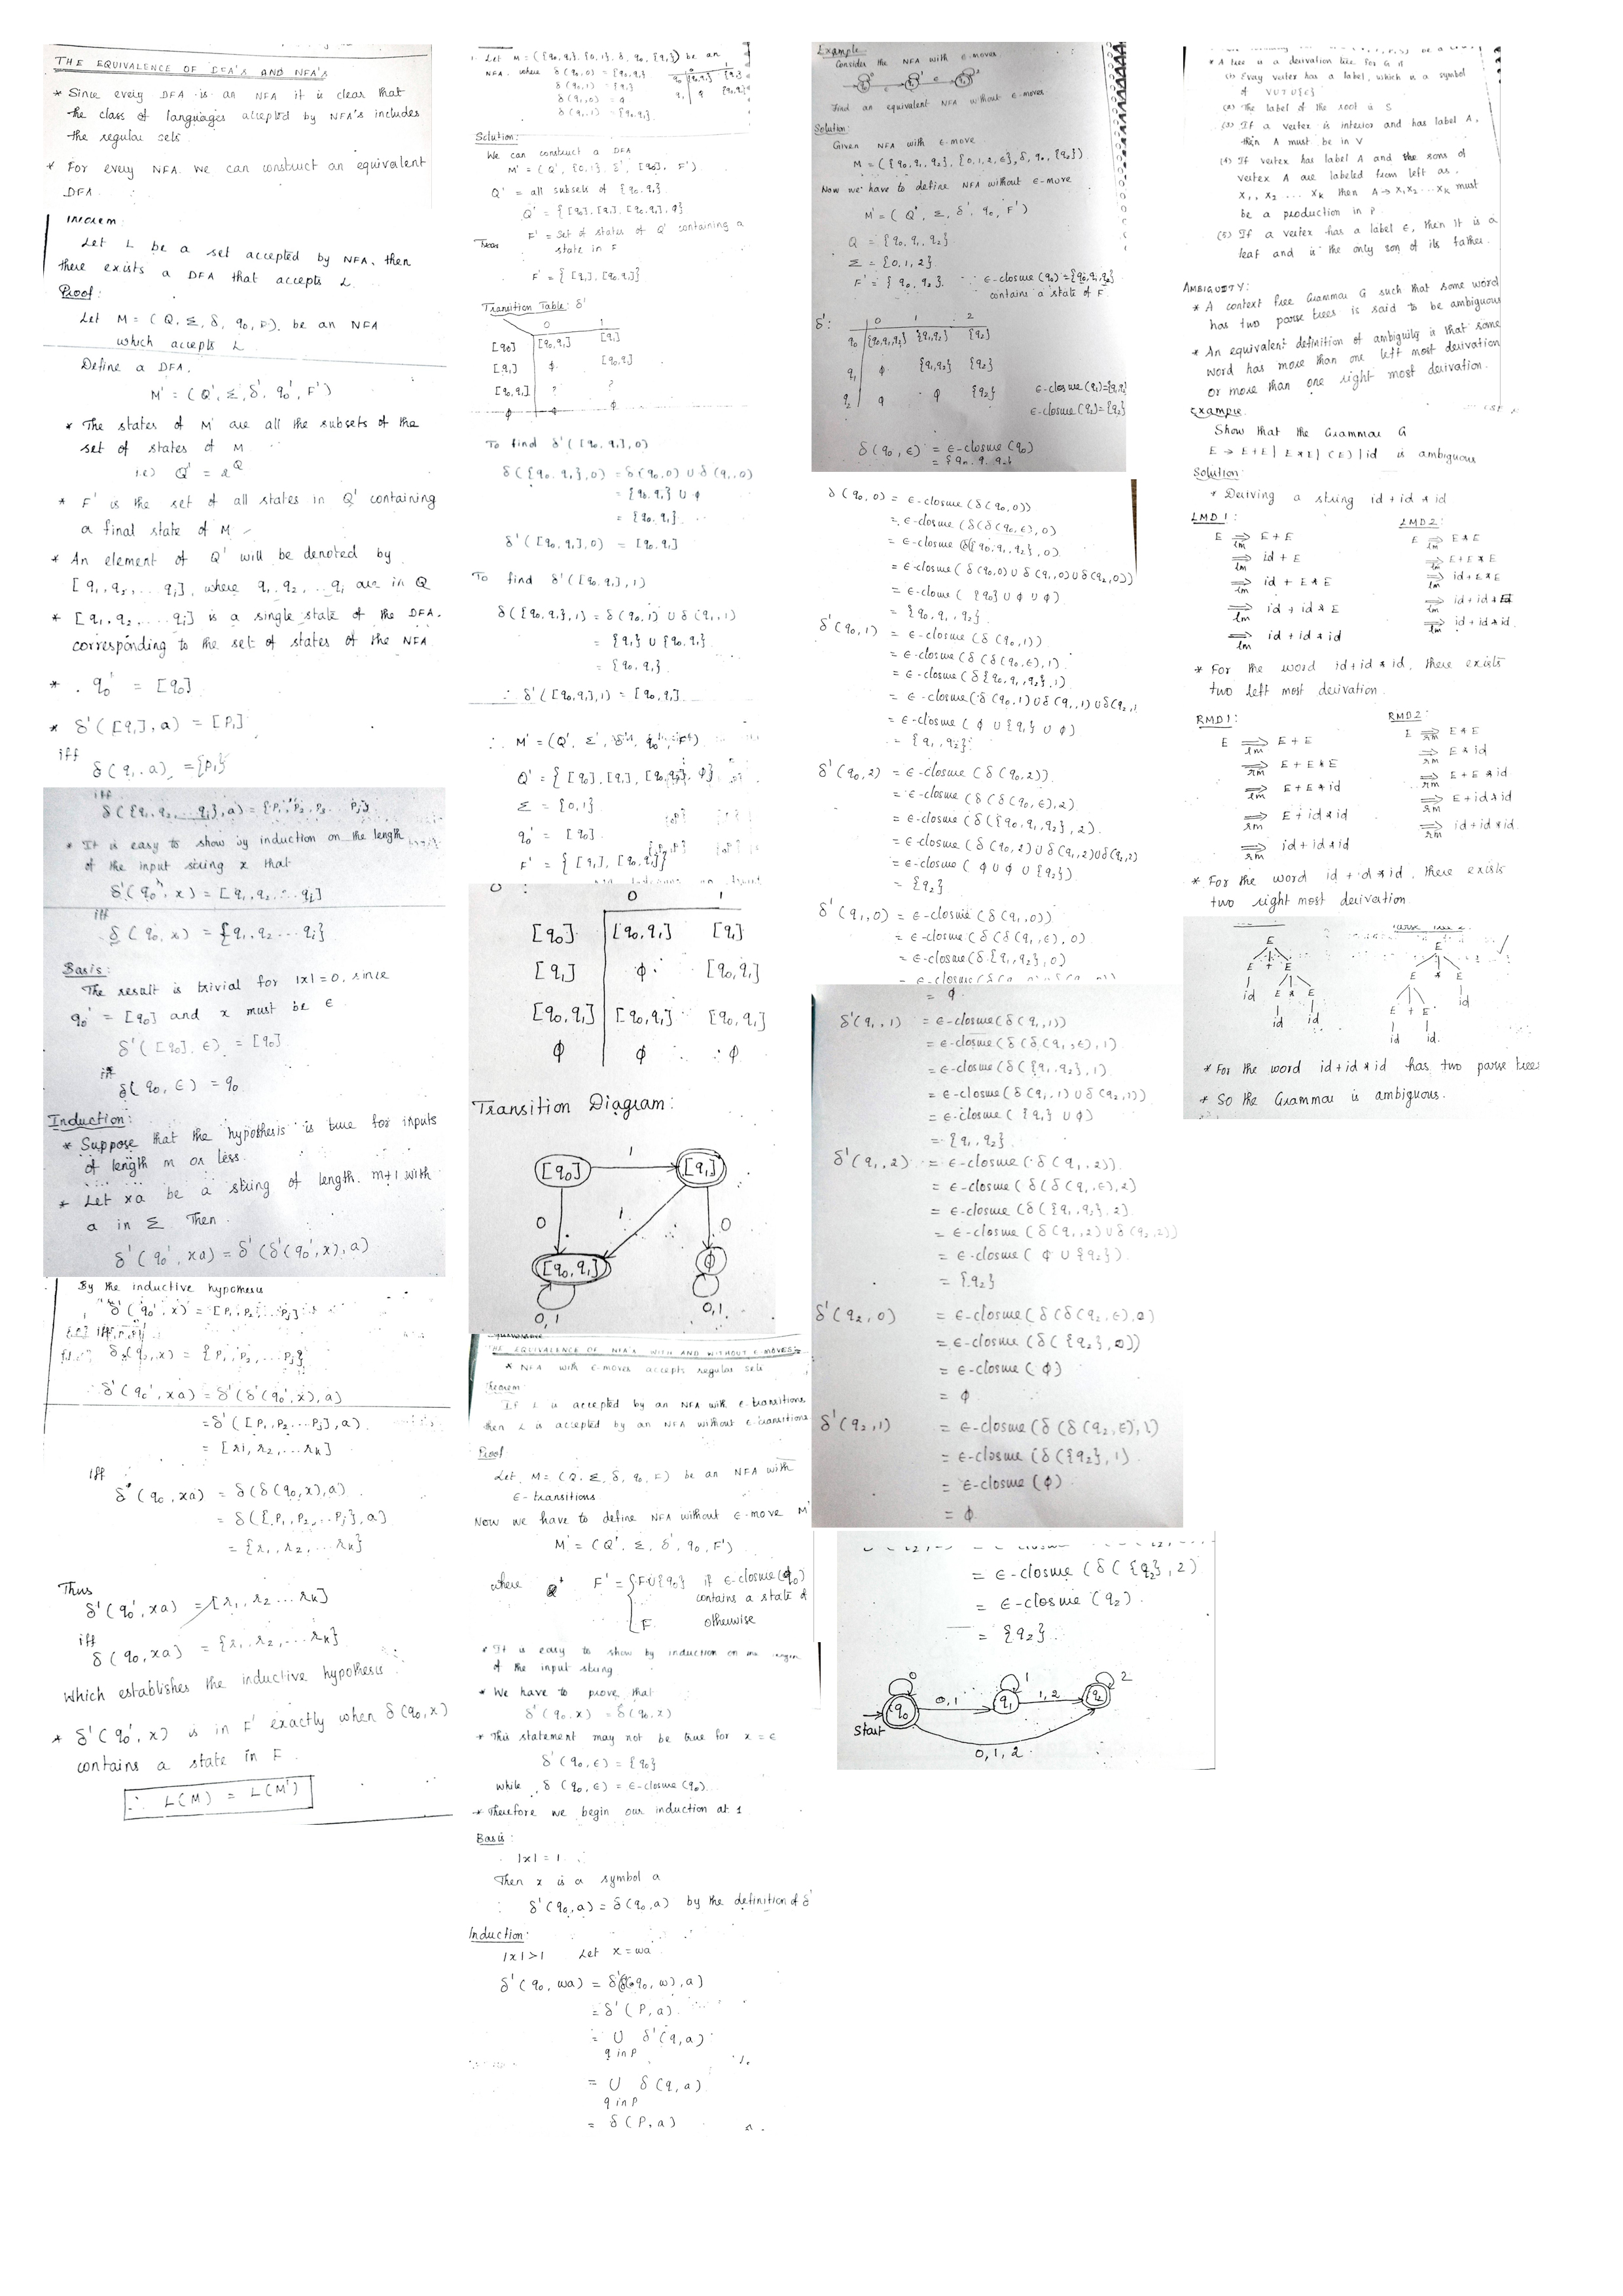 THE EQUIVALENCE OF DFA'S AND NFA'S
* Since every DFA is an NFA it is clear that
the class of languages accepted by NFA's includes
the regular sets.
* For every NFA we can construct an equivalent
DFA.
Theorem:
Let L be a set accepted by NFA, then
there exists a DFA that accepts L.
Proof:
Let M = (Q, Σ, δ, q₀, F) be an NFA
which accepts L
Define a DFA.
M' = (Q', Σ, δ', q₀', F')
* The states of M' are all the subsets of the
set of states of M
(i.e) Q' = 2^Q
* F' is the set of all states in Q' containing
a final state of M
* An element of Q' will be denoted by
[q₁, q₂, ... qᵢ], where q₁, q₂ ... qᵢ are in Q
* [q₁, q₂, ... qᵢ] is a single state of the DFA.
corresponding to the set of states of the NFA
* q₀' = [q₀]
* δ'([q₁], a) = [P₁]
iff
δ(q₁, a) = {P₁}
iff
δ({q₁, q₂, ... qᵢ}, a) = {P₁, P₂, P₃ ... Pⱼ}
* It is easy to show by induction on the length
of the input string x that
δ'(q₀', x) = [q₁, q₂ ... qᵢ]
iff
δ(q₀, x) = {q₁, q₂ ... qᵢ}
Basis:
The result is trivial for |x| = 0, since
q₀' = [q₀] and x must be ε
δ'([q₀], ε) = [q₀]
iff
δ(q₀, ε) = q₀
Induction:
* Suppose that the hypothesis is true for inputs
of length m or less.
* Let xa be a string of length m+1 with
a in Σ. Then
δ'(q₀', xa) = δ'(δ'(q₀', x), a)
By the inductive hypothesis
δ'(q₀', x) = [P₁, P₂, ... Pⱼ]
iff
δ(q₀, x) = {P₁, P₂, ... Pⱼ}
δ'(q₀', xa) = δ'(δ'(q₀', x), a)
= δ'([P₁, P₂ ... Pⱼ], a)
= [r₁, r₂, ... rₖ]
iff
δ(q₀, xa) = δ(δ(q₀, x), a)
= δ({P₁, P₂, .. Pⱼ}, a)
= {r₁, r₂, ... rₖ}
Thus
δ'(q₀', xa) = [r₁, r₂ ... rₖ]
iff
δ(q₀, xa) = {r₁, r₂, ... rₖ}
which establishes the inductive hypothesis
* δ'(q₀', x) is in F' exactly when δ(q₀, x)
contains a state in F.
∴ L(M) = L(M')
Let M = ({q₀, q₁}, {0,1}, δ, q₀, {q₁}) be an
NFA where δ(q₀, 0) = {q₀, q₁}
δ(q₀, 1) = {q₁}
δ(q₁, 0) = φ
δ(q₁, 1) = {q₀, q₁}
Solution:
We can construct a DFA
M' = (Q', {0,1}, δ', [q₀], F')
Q' = all subsets of {q₀, q₁}
Q' = {[q₀], [q₁], [q₀, q₁], φ}
F' = Set of states of Q' containing a
state in F
F' = {[q₁], [q₀, q₁]}
Transition Table: δ'
0 1
[q₀] [q₀, q₁] [q₁]
[q₁] φ [q₀, q₁]
[q₀, q₁] ? ?
φ φ φ
To find δ'([q₀, q₁], 0)
δ({q₀, q₁}, 0) = δ(q₀, 0) ∪ δ(q₁, 0)
= {q₀, q₁} ∪ φ
= {q₀, q₁}
δ'([q₀, q₁], 0) = [q₀, q₁]
To find δ'([q₀, q₁], 1)
δ({q₀, q₁}, 1) = δ(q₀, 1) ∪ δ(q₁, 1)
= {q₁} ∪ {q₀, q₁}
= {q₀, q₁}
∴ δ'([q₀, q₁], 1) = [q₀, q₁]
∴ M' = (Q', Σ, δ', q₀', F')
Q' = {[q₀], [q₁], [q₀, q₁], φ}
Σ = {0, 1}
q₀' = [q₀]
F' = {[q₁], [q₀, q₁]}
0 1
[q₀] [q₀, q₁] [q₁]
[q₁] φ [q₀, q₁]
[q₀, q₁] [q₀, q₁] [q₀, q₁]
φ φ φ
Transition Diagram:
[q₀] 1 [q₁]
0 1 0
[q₀, q₁] φ
0, 1 0, 1
THE EQUIVALENCE OF NFA'S WITH AND WITHOUT ε MOVES:
* NFA with ε-moves accepts regular sets
Theorem
If L is accepted by an NFA with ε-transitions
then L is accepted by an NFA without ε-transitions
Proof
Let M = (Q, Σ, δ, q₀, F) be an NFA with
ε-transitions
Now we have to define NFA without ε-move M'
M' = (Q', Σ, δ', q₀, F')
where F' = { F ∪ {q₀} if ε-closure(q₀)
contains a state of
F otherwise
* It is easy to show by induction on the
of the input string
* We have to prove that
δ'(q₀, x) = δ(q₀, x)
* This statement may not be true for x = ε
δ'(q₀, ε) = {q₀}
while δ(q₀, ε) = ε-closure(q₀)
* Therefore we begin our induction at 1
Basis:
|x| = 1
Then x is a symbol a
δ'(q₀, a) = δ(q₀, a) by the definition of δ'
Induction:
|x| > 1 Let x = wa
δ'(q₀, wa) = δ'(δ'(q₀, w), a)
= δ'(P, a)
= ∪ δ'(q, a)
q in P
= ∪ δ(q, a)
q in P
= δ(P, a)
Example
Consider the NFA with ε-moves
Find an equivalent NFA without ε-moves
Solution:
Given NFA with ε-move
M = ({q₀, q₁, q₂}, {0, 1, 2, ε}, δ, q₀, {q₂})
Now we have to define NFA without ε-move
M' = (Q', Σ, δ', q₀, F')
Q = {q₀, q₁, q₂}
Σ = {0, 1, 2}
F' = {q₀, q₂} ∵ ε-closure(q₀) = {q₀, q₁, q₂}
contains a state of F
δ': 0 1 2
q₀ {q₀, q₁, q₂} {q₁, q₂} {q₂}
q₁ φ {q₁, q₂} {q₂}
q₂ φ φ {q₂}
ε-closure(q₁) = {q₁, q₂
ε-closure(q₂) = {q₂}
δ(q₀, ε) = ε-closure(q₀)
= {q₀, q₁, q₂}
δ'(q₀, 0) = ε-closure(δ(q₀, 0))
= ε-closure(δ(δ(q₀, ε), 0)
= ε-closure(δ({q₀, q₁, q₂}, 0)
= ε-closure(δ(q₀, 0) ∪ δ(q₁, 0) ∪ δ(q₂, 0))
= ε-cloure({q₀} ∪ φ ∪ φ)
= {q₀, q₁, q₂}
δ'(q₀, 1) = ε-closure(δ(q₀, 1))
= ε-closure(δ(δ(q₀, ε), 1)
= ε-closure(δ{q₀, q₁, q₂}, 1)
= ε-closure(δ(q₀, 1) ∪ δ(q₁, 1) ∪ δ(q₂, 1
= ε-closure(φ ∪ {q₁} ∪ φ)
= {q₁, q₂}
δ'(q₀, 2) = ε-closure(δ(q₀, 2))
= ε-closure(δ(δ(q₀, ε), 2)
= ε-closure(δ({q₀, q₁, q₂}, 2)
= ε-closure(δ(q₀, 2) ∪ δ(q₁, 2) ∪ δ(q₂, 2)
= ε-closure(φ ∪ φ ∪ {q₂})
= {q₂}
δ'(q₁, 0) = ε-closure(δ(q₁, 0))
= ε-closure(δ(δ(q₁, ε), 0)
= ε-closure(δ{q₁, q₂}, 0)
= φ
δ'(q₁, 1) = ε-closure(δ(q₁, 1))
= ε-closure(δ(δ(q₁, ε), 1)
= ε-closure(δ({q₁, q₂}, 1)
= ε-closure(δ(q₁, 1) ∪ δ(q₂, 1))
= ε-closure({q₁} ∪ φ)
= {q₁, q₂}
δ'(q₁, 2) = ε-closure(δ(q₁, 2))
= ε-closure(δ(δ(q₁, ε), 2)
= ε-closure(δ({q₁, q₂}, 2)
= ε-closure(δ(q₁, 2) ∪ δ(q₂, 2))
= ε-closure(φ ∪ {q₂})
= {q₂}
δ'(q₂, 0) = ε-closure(δ(δ(q₂, ε), 0)
= ε-closure(δ({q₂}, 0))
= ε-closure(φ)
= φ
δ'(q₂, 1) = ε-closure(δ(δ(q₂, ε), 1)
= ε-closure(δ({q₂}, 1)
= ε-closure(φ)
= φ
= ε-closure(δ({q₂}, 2)
= ε-closure(q₂)
= {q₂}
0 1 2
Start q₀ 0, 1 q₁ 1, 2 q₂
0, 1, 2
* A tree is a derivation tree for G if
(1) Every vertex has a label, which is a symbol
of V ∪ T ∪ {ε}
(2) The label of the root is S
(3) If a vertex is interior and has label A,
then A must be in V
(4) If vertex has label A and the sons of
vertex A are labeled from left as
X₁, X₂ ... Xₖ then A → X₁X₂ ... Xₖ must
be a production in P
(5) If a vertex has a label ε, then it is a
leaf and is the only son of its father.
AMBIGUITY:
* A context free Grammar G such that some word
has two parse trees is said to be ambiguous
* An equivalent definition of ambiguity is that some
word has more than one left most derivation
or more than one right most derivation.
Example.
Show that the Grammar G
E → E+E | E*E | (E) | id is ambiguous
Solution
* Deriving a string id + id * id
LMD1: LMD2:
E ⇒lm E + E E ⇒lm E * E
⇒lm id + E ⇒lm E + E * E
⇒lm id + E * E ⇒lm id + E * E
⇒lm id + id * E ⇒lm id + id * E
⇒lm id + id * id ⇒lm id + id * id
* For the word id + id * id, there exists
two left most derivation.
RMD1: RMD2:
E ⇒lm E + E E ⇒rm E * E
⇒rm E + E * E ⇒rm E * id
⇒rm E + E * id ⇒rm E + E * id
⇒rm E + id * id ⇒rm E + id * id
⇒rm id + id * id ⇒rm id + id * id
* For the word id + id * id, there exists
two right most derivation
E E
E + E E * E
id E * E E + E id
id id id id
* For the word id + id * id has two parse trees
* So the Grammar is ambiguous.